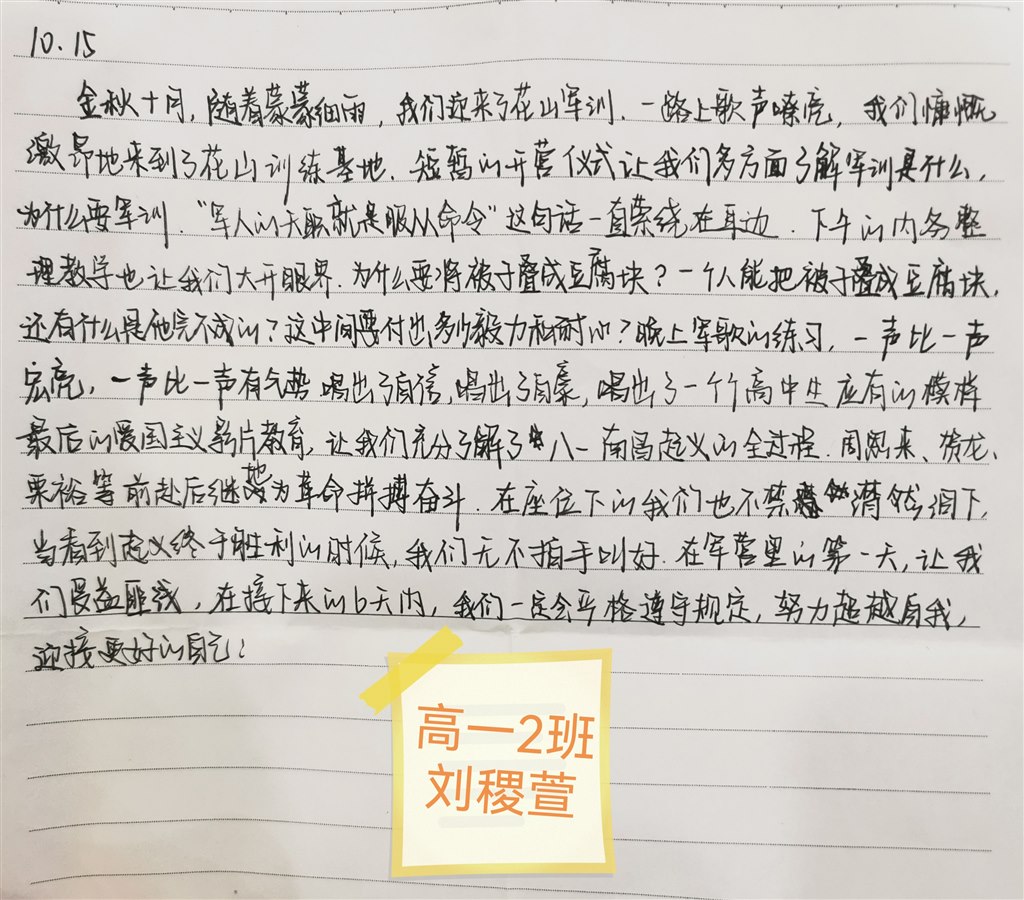 10.15
金秋十月,随着蒙蒙细雨,我们迎来了花山军训.一路上歌声嘹亮,我们慷慨
激昂地来到了花山训练基地.短暂的开营仪式让我们多方面了解军训是什么,
为什么要军训.“军人的天职就是服从命令”这句话一直萦绕在耳边.下午的内务整
理教学也让我们大开眼界.为什么要将被子叠成豆腐块?一个人能把被子叠成豆腐块,
还有什么是他完不成的?这中间要付出多少毅力和耐心?晚上军歌的练习,一声比一声
宏亮,一声比一声有气势.唱出了自信,唱出了自豪,唱出了一个个高中生应有的模样
最后的爱国主义影片教育,让我们充分了解了八一南昌起义的全过程.周恩来、贺龙、
粟裕等前赴后继地为革命拼搏奋斗.在座位下的我们也不禁潸然泪下,
当看到起义终于胜利的时候,我们无不拍手叫好.在军营里的第一天,让我
们受益匪浅,在接下来的6天内,我们一定会严格遵守规定,努力超越自我,
迎接更好的自己!
高一2班
刘稷萱